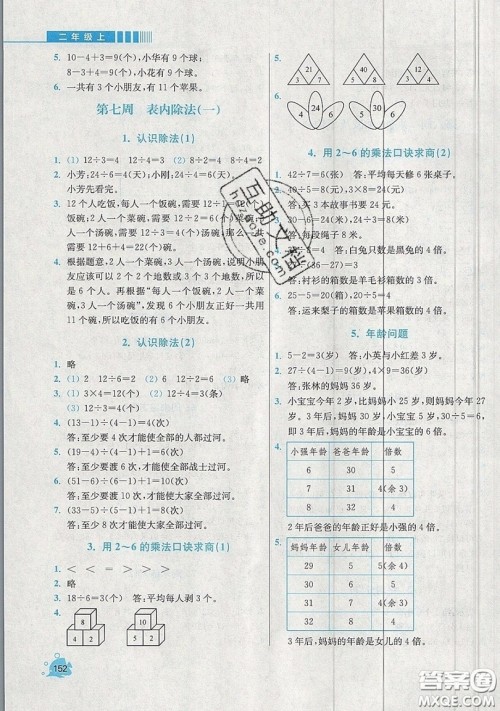 二年级上
5. 10－4＋3＝9(个)，小华有9个球；
8－3＋4＝9(个)，小花有9个球。
6. 一共有3个小朋友，有11个苹果。
第七周 表内除法(一)
1. 认识除法(1)
1. (1) 12÷3＝4 (2) 8÷2＝4 8÷4＝2
2. 小芳：24÷6＝4(天)；小刚：24÷4＝6(天)
小芳先看完。
3. 12个人吃饭，每人一个饭碗，需要12个
饭碗；2人一个菜碗，需要12÷2＝6(个)
菜碗；3人一个汤碗，需要12÷3＝4(个)
汤碗；一共需要12＋6＋4＝22(个)碗。
4. 根据题意，2人一个菜碗，3人一个汤碗，
说明小朋友应该可以2个2个或3个3个地数，所以
是6个人。再根据“每人一个饭碗，2人一
个菜碗，3人一个汤碗”，发现6个小朋友正好用11个碗，
所以吃饭的有6个小朋友。
2. 认识除法(2)
1. 略
2. (1) 12÷6＝2 (2) 12÷2＝6
3. (1) 3×4＝12(个) (2) 12÷4＝3(条)
(3) 12÷3＝4(个)
4. (13－1)÷(4－1)＝4(次)
答：至少要4次才能使全部的人都过河。
5. (31－1)÷(6－1)＝6(次)
答：至少要渡6次，才能使全部战士过河。
6. (51－6)÷(6－1)＋1＝10(次)
答：至少渡10次，才能使大家全部过河。
7. (37－2)÷(6－1)＋1＝8(次)
答：至少要渡8次，才能使大家全部过河。
3. 用2～6的乘法口诀求商(1)
1. ＜ ＜ ＝ ＞ ＞ ＝
2. 略
3. 18÷6＝3(个) 答：平均每人剥3个。
4.
8
4 2
10
5 2
152
5.
3
24 8
4
30 6
4 24 6
5 30 6
4. 用2～6的乘法口诀求商(2)
1. 42÷7＝6(张) 答：平均每天修6张桌子。
答：买3本故事书要24元。
答：每段绳子8米。
答：白兔只数是黑兔的4倍。
答：衬衫的箱数是羊毛衫箱数的3倍。
答：运来梨子的箱数是苹果箱数的4倍。
5. 年龄问题
1. 5－2＝3(岁) 答：小英与小红差3岁。
2. 27÷(4－1)＝9(岁) 27＋9＝36(岁)
答：张林的妈妈36岁。
3. 小宝宝今年2岁，比妈妈小25岁，则妈
妈今年27岁。再过3年，小宝宝5岁，妈
妈30岁，妈妈的年龄是小宝宝的6倍。
4.
小强年龄 爸爸年龄 倍数
6 30 5
7 31 4(余3)
8 32 4
2年后爸爸的年龄正好是小强的4倍。
5.
妈妈年龄 女儿年龄 倍数
29 5
30 6 5
31 7 4(余3)
32 8 4
3年后，妈妈的年龄是女儿的4倍。
互助文档
答案圈
MXQE.COM